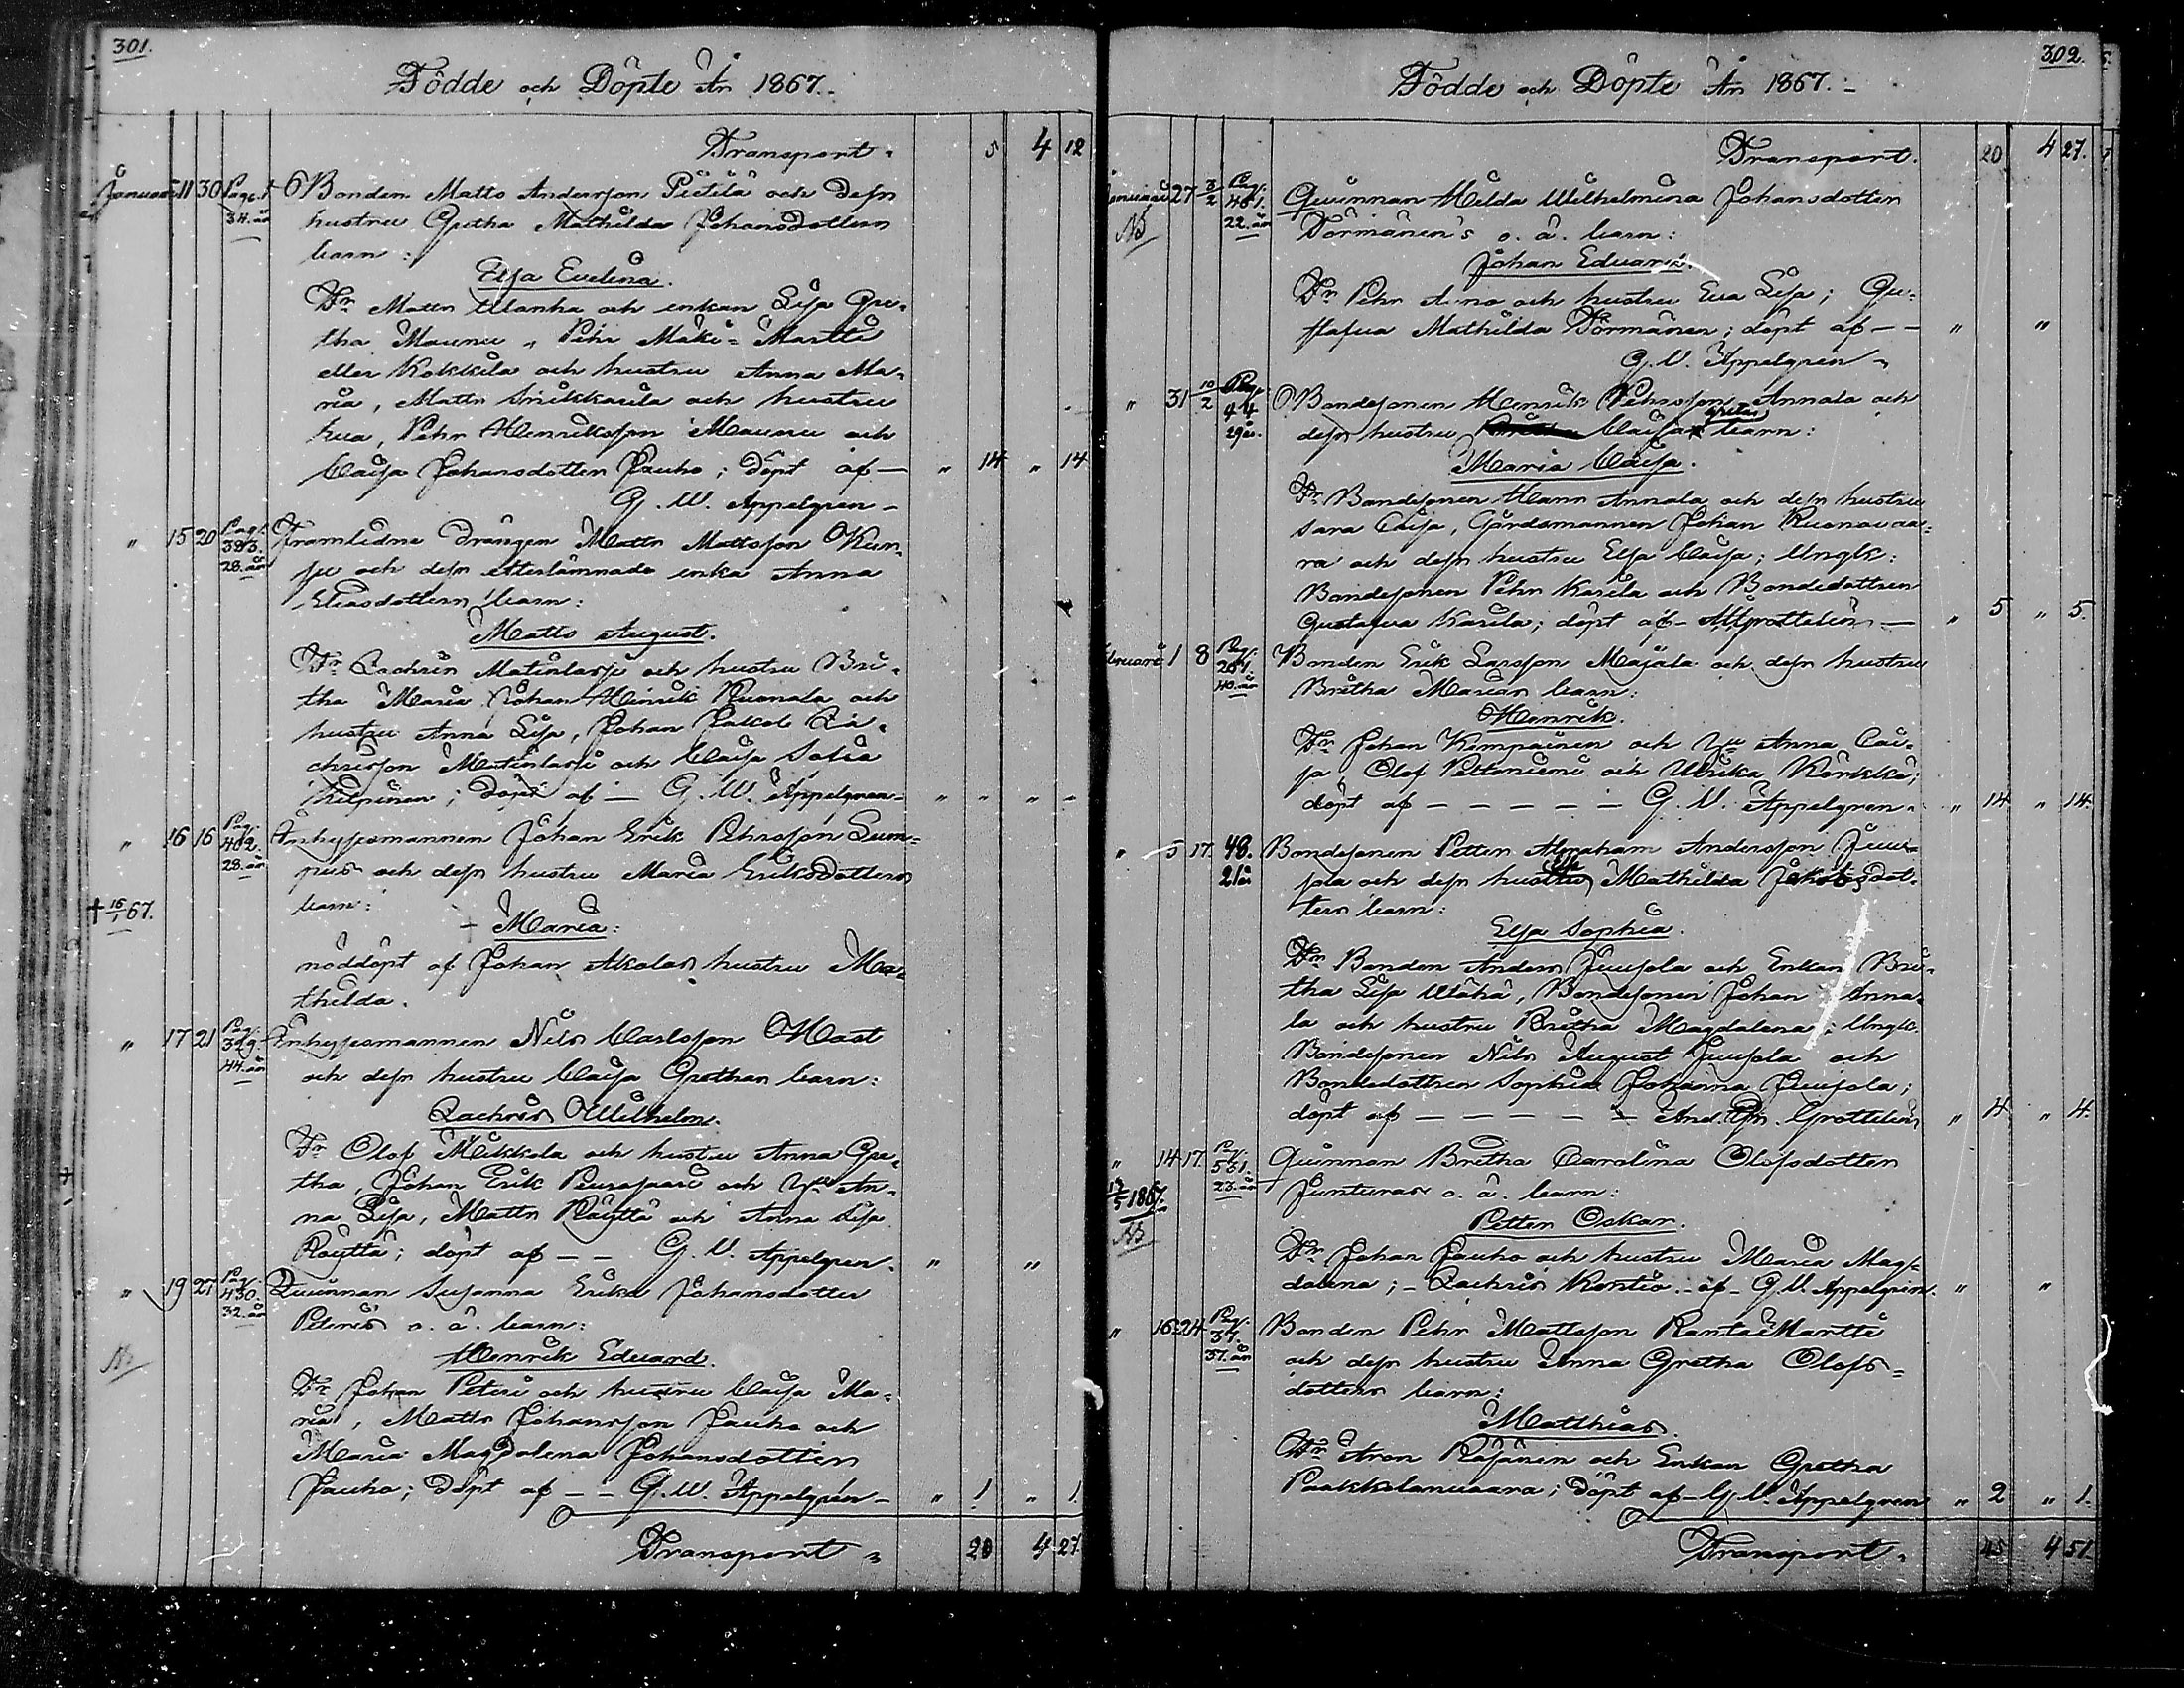 301.
Födde och Döpte År 1867.
Transport 5 4 12
Januari 11 30 Pag. 1 Bonden Matts Andersson Pietilä och dess
34. år hustru Gretha Mathilda Johansdotters
barn:
Elsa Evelina.
Fr Matts och enkan Lisa Gre-
tha Maunu, Pehr Mäki-Martti
eller Kokkila och hustru Anna Ma-
ria, Matts Snikkarila och hustru
Eva, Pehr Henriksson Maunu och
Caisa Johansdotter Jauho; döpt af — " 14 " 14
G. W. Appelgren
" 15 20 Pag. 383. Framlidne Drängen Matts Mattsson
28. år och dess efterlämnade enka Anna
Eliasdotters barn:
Matts August.
Fr Zachris Matinlassi och hustru Bri-
tha Maria, Johan Henrik Ruonala och
hustru Anna Lisa, Johan Jakob Za-
chrisson Matinlassi och Caisa Sofia
Kilpinen; döpt af — G. W. Appelgren " " " "
" 16 16 Pag. 402. Inhysesmannen Johan Erik Pehrsson Lum-
28. år pus och dess hustru Maria Eriksdotters
† 16/1 67. barn:
Maria:
nöddöpt af Johan Akolas hustru Ma-
thilda.
" 17 21 Pag. Inhysesmannen Nils Carlsson Mast
44. år och dess hustru Caisa Grethas barn:
Zachris Wilhelm.
Fr Olof Mikkola och hustru Anna Gre-
tha, Johan Erik Peurasaari och An-
na Lisa, Matts Räyttä och Anna Lisa
Räyttä; döpt af — — G. W. Appelgren. " "
" 19 27 Pag. 430. Quinnan Susanna Erika Johansdotter
32. år Peteris o. ä. barn:
NB
Henrik Eduard.
Fr Johan Peteri och hustru Caisa Ma-
ria, Matts Johansson Jauho och
Maria Magdalena Johansdotter
Jauho; döpt af — — G. W. Appelgren — " 1 " 1.
Transport 20 4 27
302.
Födde och Döpte År 1867.
Transport. 20 4 27.
Januari 27 3/2 Pag. 401. Quinnan Hilda Wilhelmina Johansdotter
NB 22. år Törmänen's o. ä. barn:
Johan Eduard.
Fr Pehr Arno och hustru Eva Lisa; Gu-
stafva Mathilda Törmänen; döpt af — — " "
G. W. Appelgren
" 31 10/2 Pag. 44 Bondesonen Henrik Pehrsson Annala och
29 år. dess hustru Caisa Gretas barn:
Maria Caisa.
Fr Bondesonen Mann Annala och dess hustru
Sara Caisa, Gårdsmannen Johan Ruonavaa-
ra och dess hustru Elsa Caisa; Ungk.
Bondesonen Pehr Karila och Bondedottren
Gustafva Karila; döpt af — — " 5 " 5.
Februari 1 8 Pag. Bonden Erik Larsson Majala och dess hustru
40. år Britha Marias barn:
Henrik.
Fr Johan Kimpainen och Anna Cai-
sa, Olof Peltoniemi och Ulrika Könkkö;
döpt af — — — — — G. W. Appelgren. " 14 " 14.
" 5 17. 48. Bondesonen Petter Abraham Andersson Juu-
21 år sola och dess hustru Mathilda Jakobsdot-
ters barn:
Elsa Sophia.
Fr Bonden Anders Juusola och Enkan Bri-
tha Lisa Ylähä, Bondesonen Johan Anna-
la och hustru Britha Magdalena; Ungk.
Bondesonen Nils August Juusola och
Bondedottren Sophia Johanna Juusola;
döpt af — — — — — And. Joh. Grottelius " 4 " 4.
" 14 17. Pag. 551. Quinnan Britha Carolina Olofsdotter
23. år Junturas o. ä. barn:
1867.
NB
Petter Oskar.
Fr Johan Jauho och hustru Maria Mag-
dalena; — Zachris Kontio. — af — G. W. Appelgren. " "
" 16 24 Pag. 37. Bonden Pehr Mattsson RantaMartti
37. år och dess hustru Anna Gretha Olofs-
dotters barn:
Matthias.
Fr Aron Räsänen och Enkan Gretha
Paakkolanvaara; döpt af — G. W. Appelgren " 2 " 1.
Transport 45 4 51.